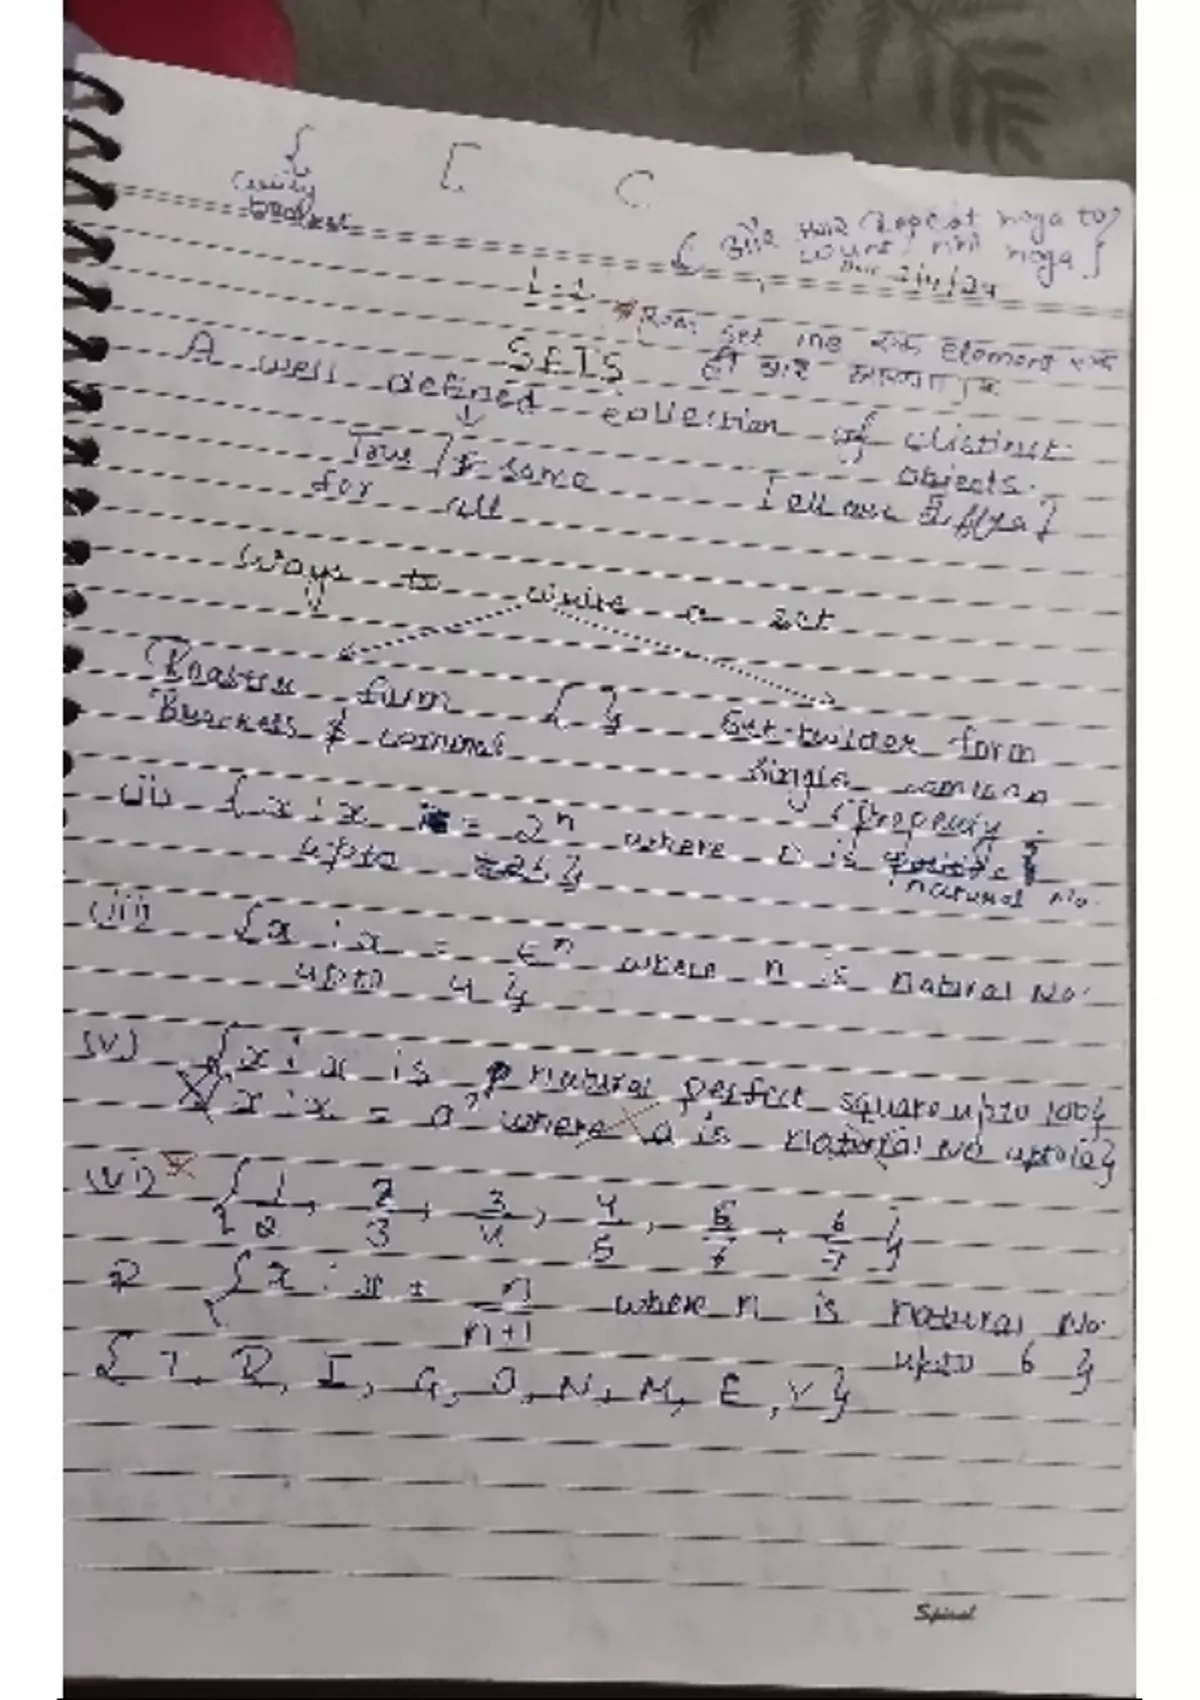 { [ (
Curly
bracket
{ और बार (Repeat hoga to
count नहीं hoga }
Date 2/4/24
1.1
* set me एक Element एक
SETS ही बार
A well defined collection of distinct
objects.
True / & same [all are diff
for all
Ways to write a set
Roaster form { } Set-builder form
Brackets & comma Single
(property
(ii) {x : x = 2^n where n is
upto natural No.
(iii) {x : x = ^n where n is natural No.
upto 4}
(v) {x : x is natural perfect square upto 100}
{x : x = a² where a is natural No upto 10}
(vi) * { 1/2, 2/3, 3/4, 4/5, 5/6, 6/7 }
{x : x = n/n+1 where n is natural No.
upto 6 }
{ T, R, I, G, O, N, M, E, Y}
Spiral